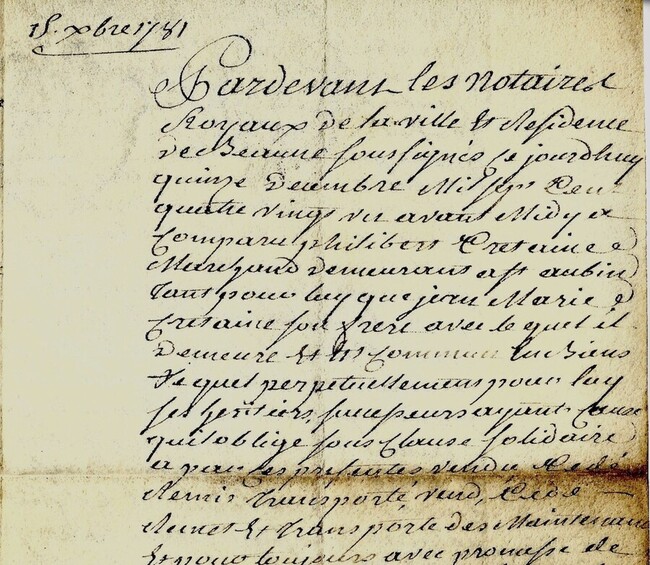 15. xbre 1781
Pardevant les Notaires
Royaux de la ville Et Residence
de Beaune soussignés ce jourdhuy
quinze decembre Mil sept Cent
quatre vingt un avant Midy a
Comparu philibert Cretaine
Marchand demeurant a st aubin
tant pour luy que jean Marie
Cretaine son frere avec lequel il
demeure Et Est Commun En Biens
lequel perpetuellement pour luy
ses heritiers, successeurs ayant Cause
quil oblige sous Clause solidaire
a par Ces presentes vendu Cedé
Remis transporté vend, Cede
Remet Et transporte des Maintenant
Et pour toujours avec promesse de